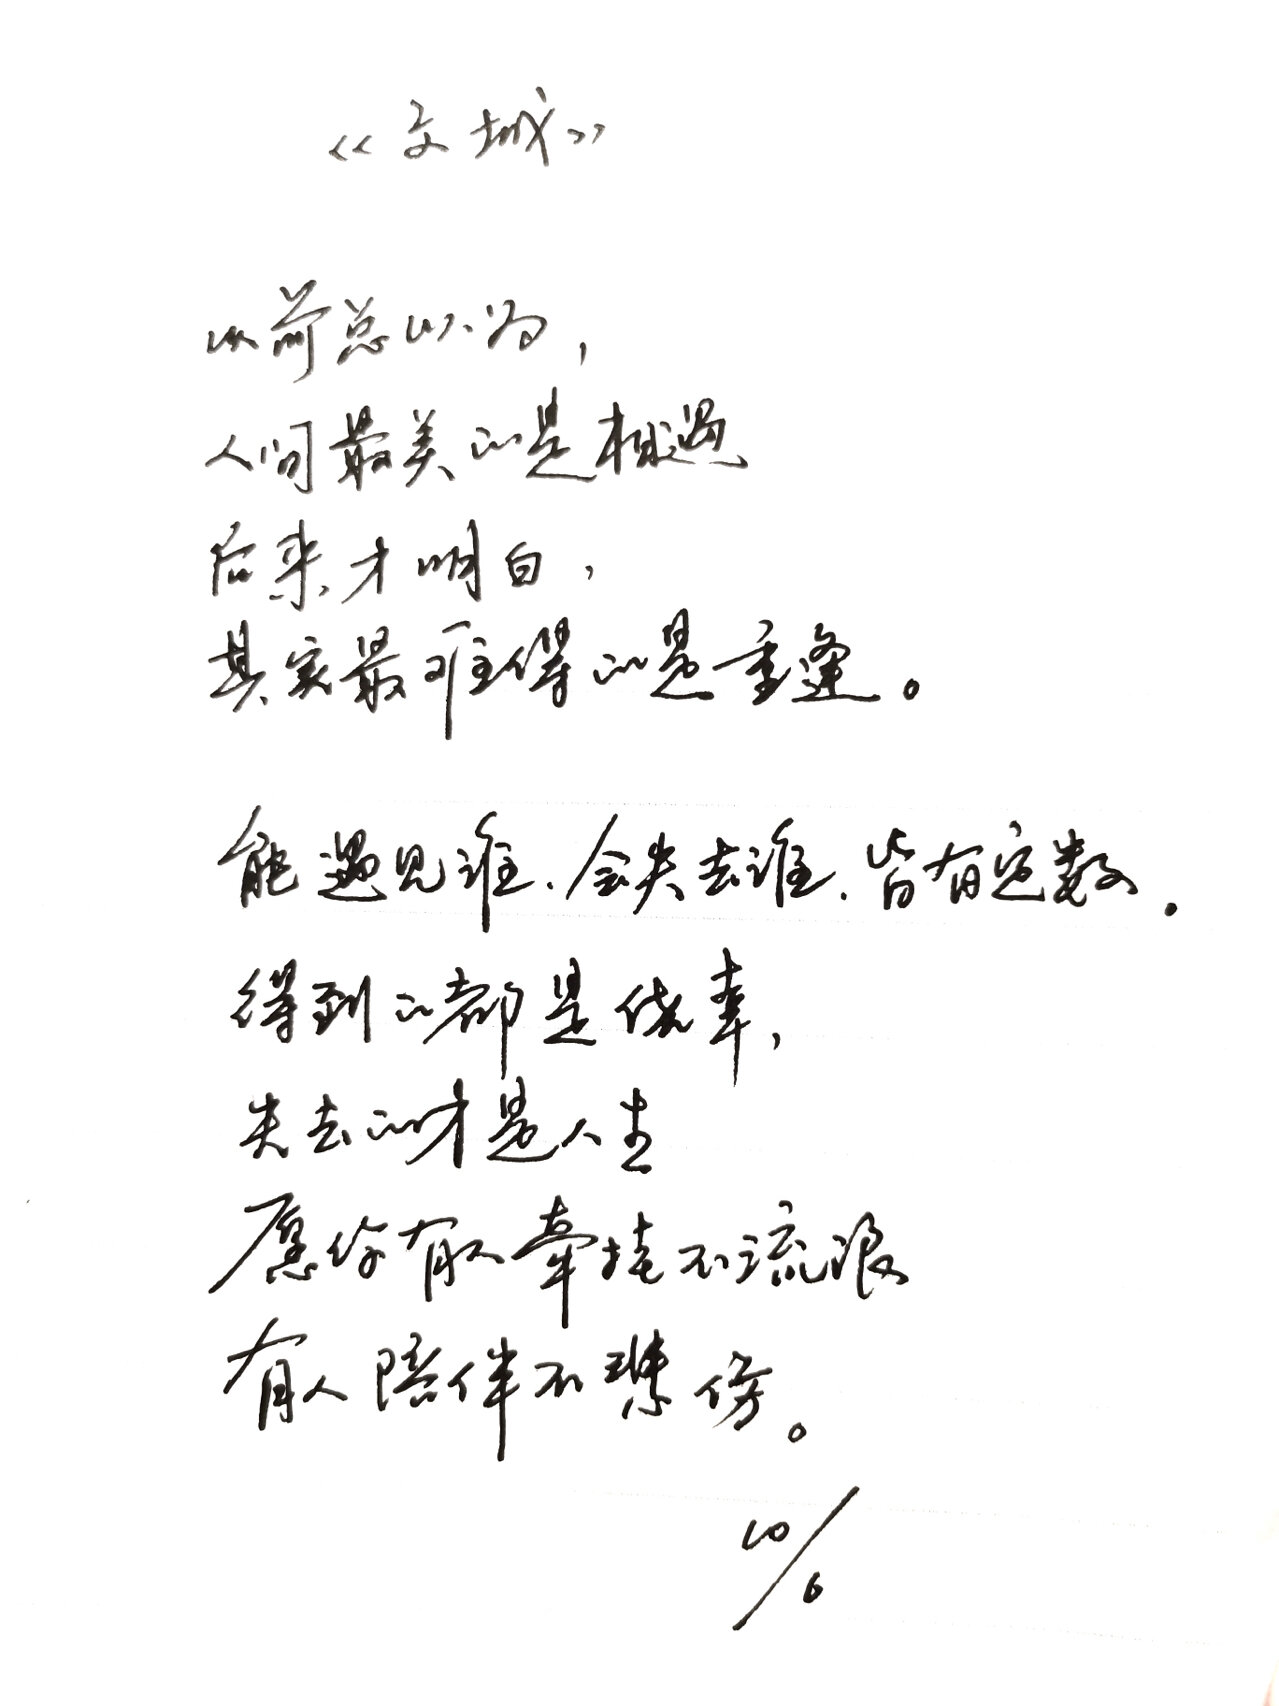 《文城》
从前总以为，
人间最美的是相遇
后来才明白，
其实最难得的是重逢。
能遇见谁、会失去谁、皆有定数.
得到的都是侥幸，
失去的才是人生
愿你有人牵挂不流浪
有人陪伴不悲伤。
10/6